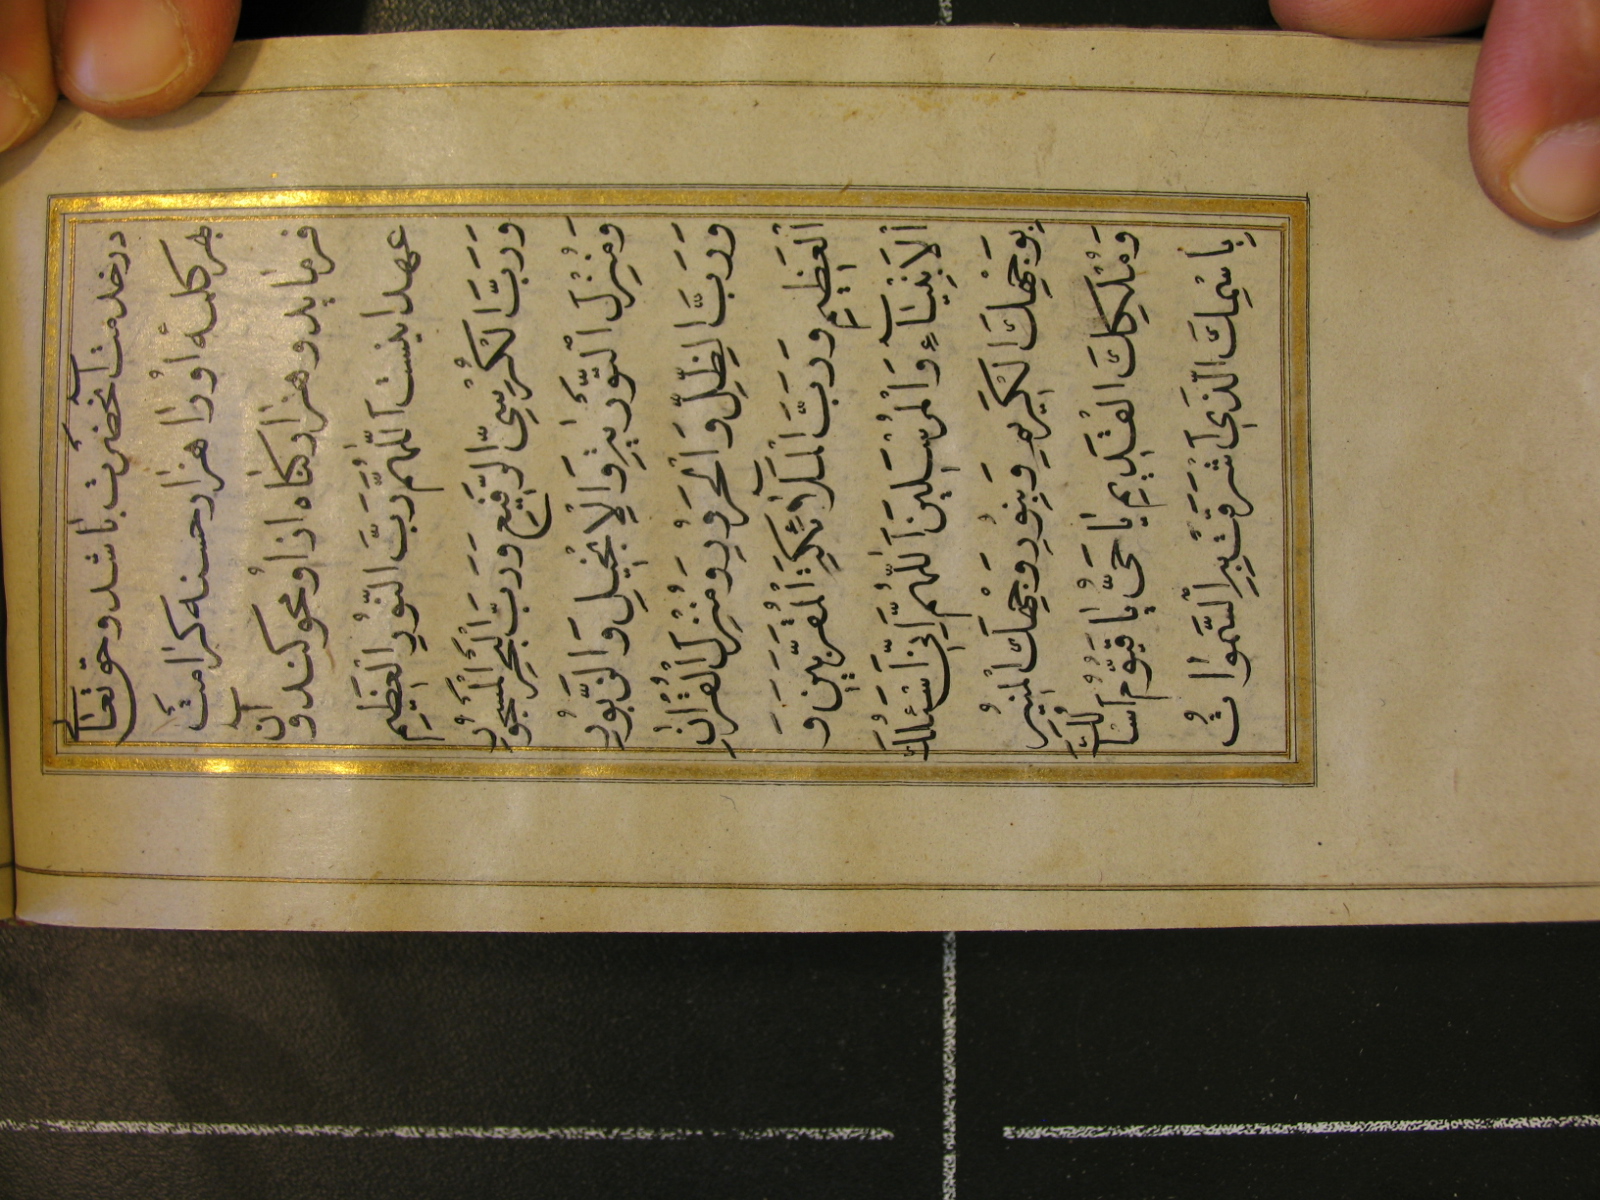 در خدمت آنحضرت باشد و حق تعالی
بهر کلمهٔ او را هزار حسنه کرامت
فرماید و هزار کناه از او محو کند و آن
عهد اینست اَللّٰهُمَّ رَبَّ النُّورِ الْعَظِیمِ
وَرَبَّ الْکُرْسِیِّ الرَّفِیعِ وَرَبَّ الْبَحْرِ الْمَسْجُورِ
وَمُنْزِلَ التَّوْرٰیةِ وَالْاِنْجِیلِ وَالزَّبُورِ
وَرَبَّ الظِّلِّ وَالْحَرُورِ وَمُنْزِلَ الْقُرْاٰنِ
الْعَظِیمِ وَرَبَّ الْمَلَآئِکَةِ الْمُقَرَّبِینَ وَ
الْاَنْبِیَآءِ وَالْمُرْسَلِینَ اَللّٰهُمَّ اِنِّی اَسْئَلُکَ
بِوَجْهِکَ الْکَرِیمِ وَبِنُورِ وَجْهِکَ الْمُنِیرِ
وَمُلْکِکَ الْقَدِیمِ یٰا حَیُّ یٰا قَیُّومُ اَسْاَلُکَ
بِاسْمِکَ الَّذِی اَشْرَقَتْ بِهِ السَّمٰوٰاتُ